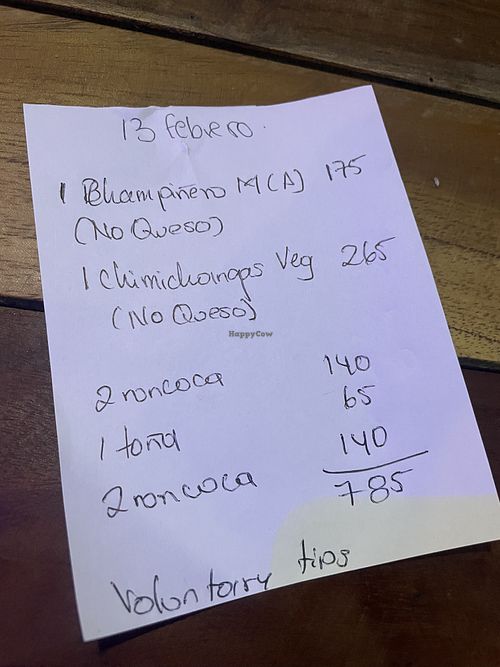 13 febrero.
1 Bhampiñero M(A) 175
(No Queso)
1 Chimichangas Veg 265
(No Queso)
2 roncoca 140
1 toña 65
2 roncoca 140
785
Voluntarry tips
HappyCow